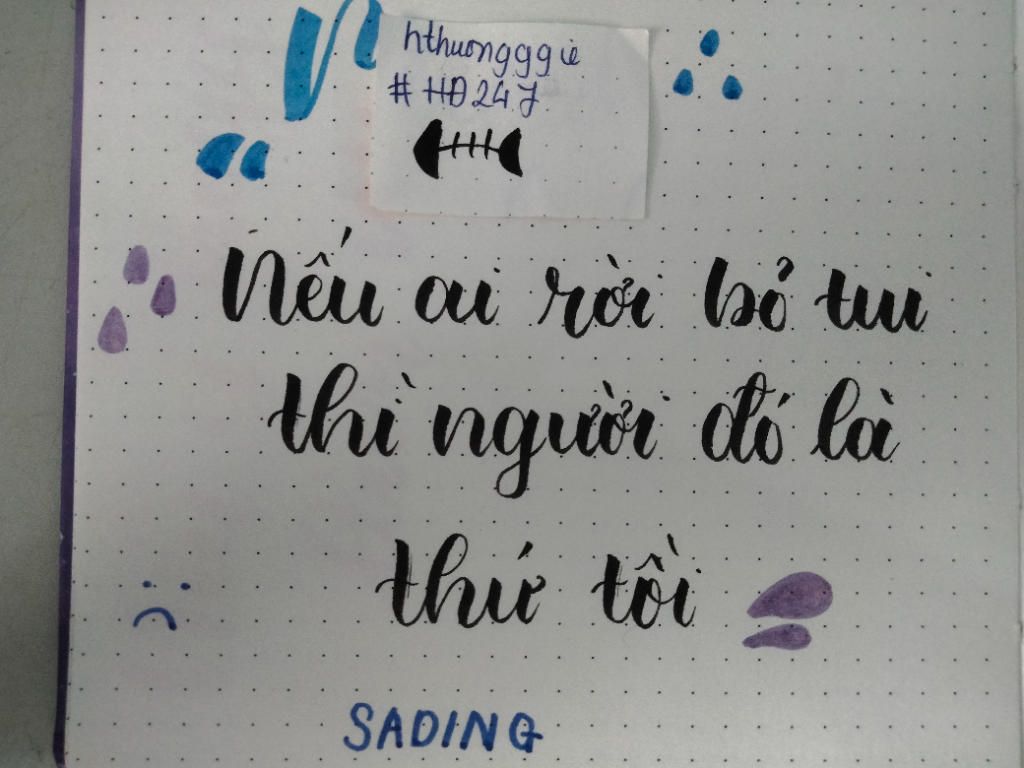 hthuongggie
#HĐ247
Nếu ai rời bỏ tui
thì người đó là
thứ tồi
SADING